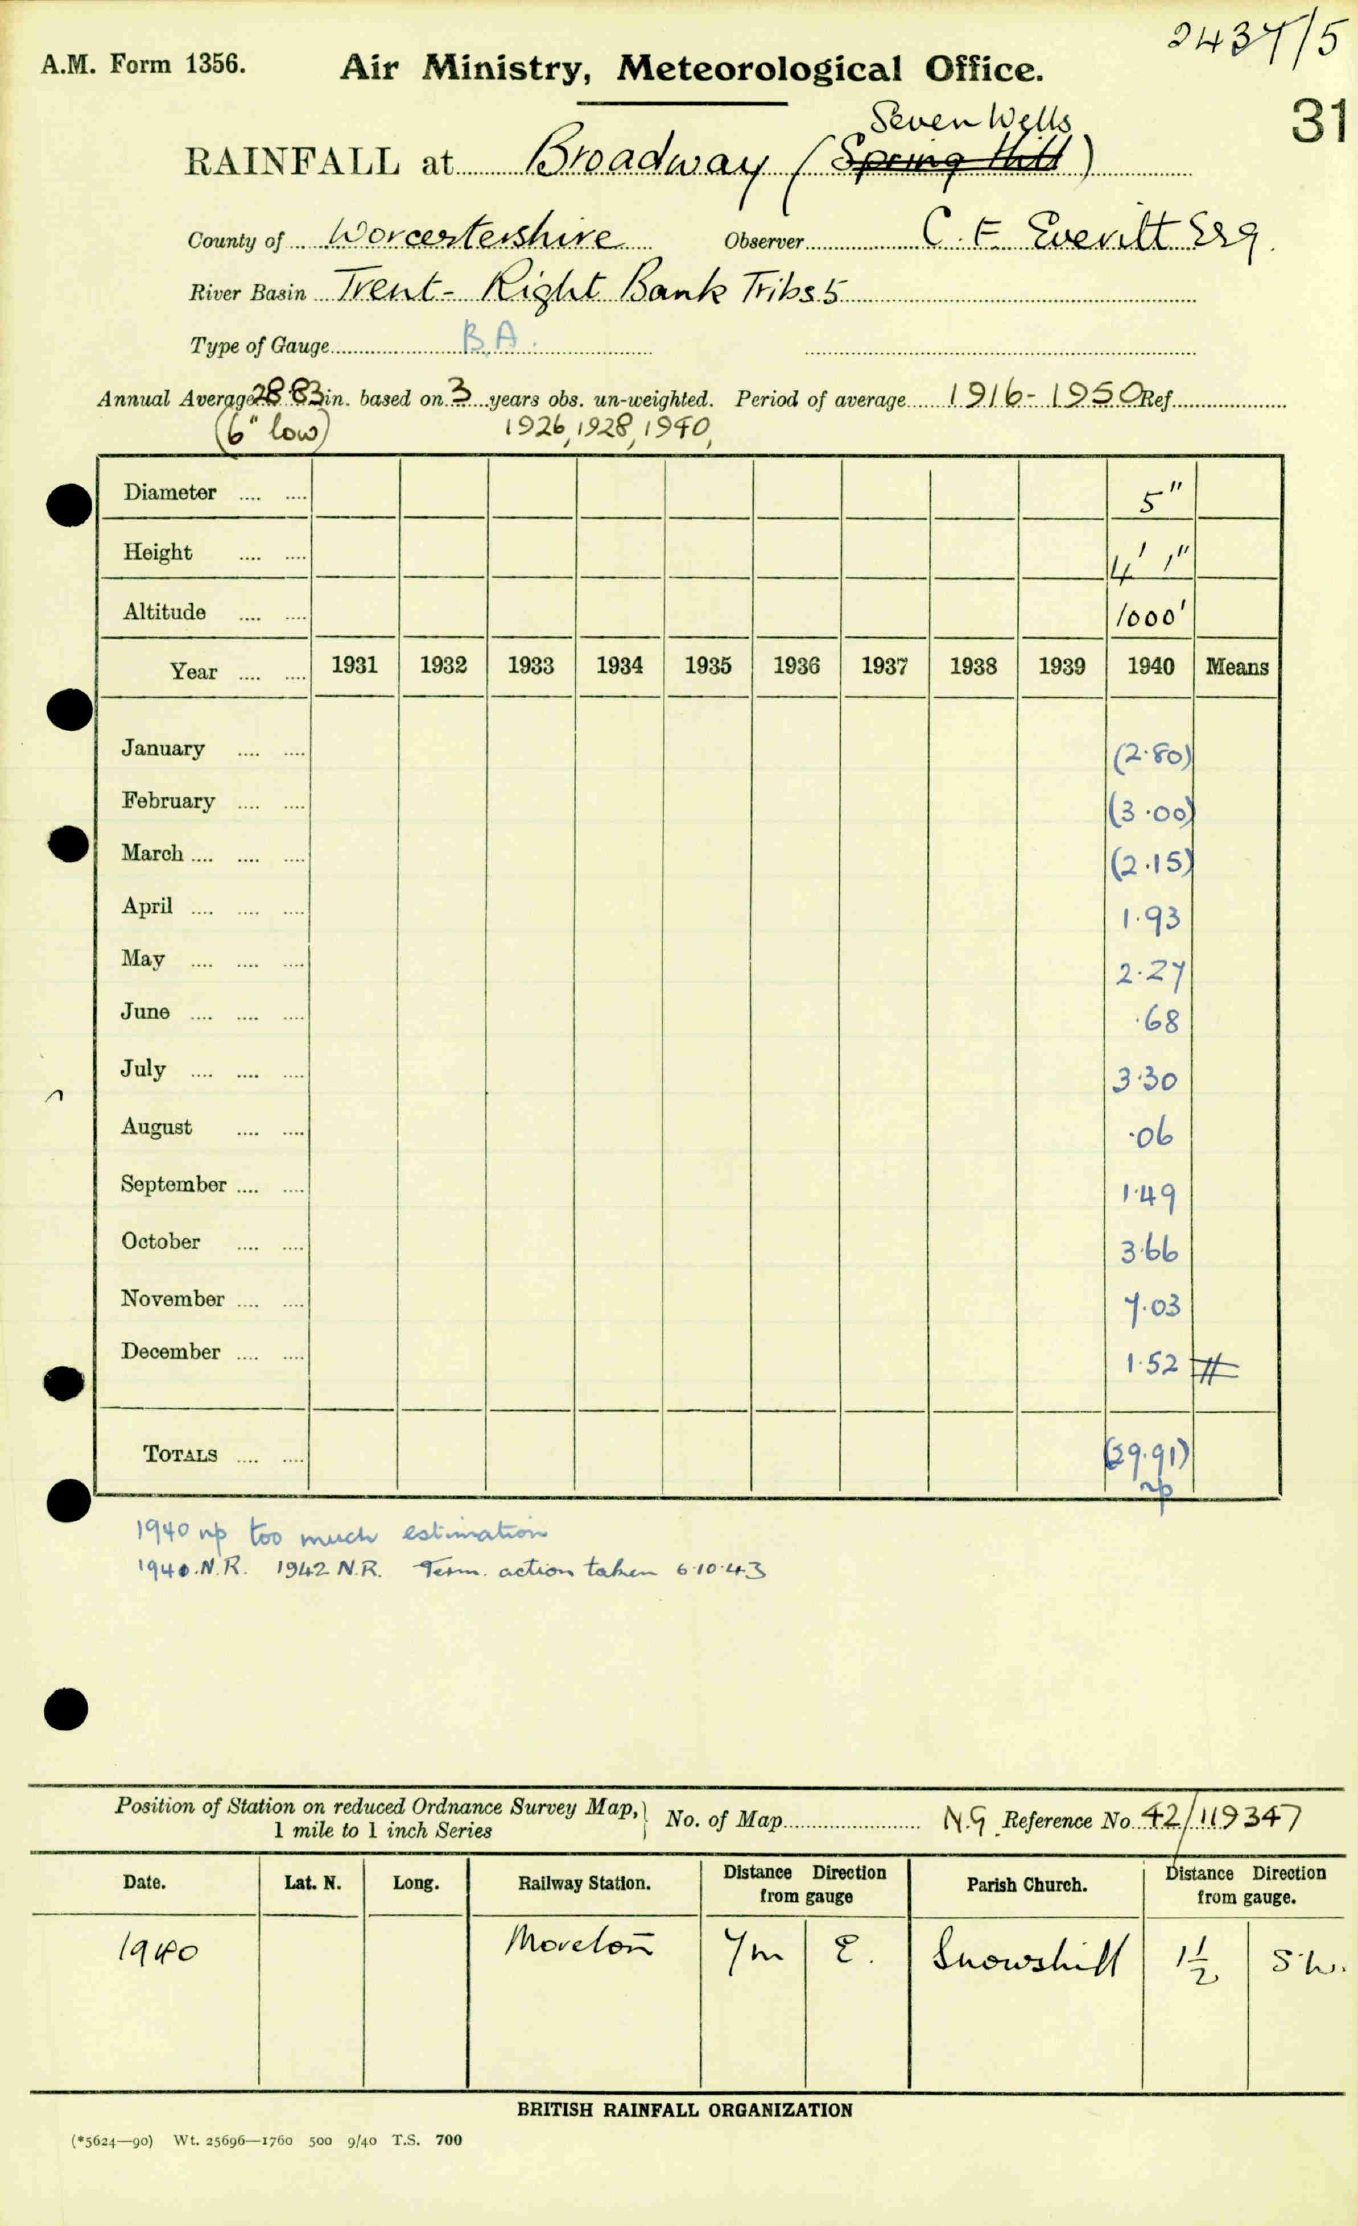 2437/5
A.M. Form 1356. Air Ministry, Meteorological Office.
31
Seven Wells
RAINFALL at Broadway (Spring Hill)
County of Worcestershire Observer C. F. Everitt Esq.
River Basin Trent- Right Bank Tribs 5
Type of Gauge B.A.
Annual Average 28.83 in. based on 3 years obs. un-weighted. Period of average 1916-1950 Ref.
(6" low) 1926, 1928, 1940,
Diameter 5"
Height 4' 1"
Altitude 1000'
Year 1931 1932 1933 1934 1935 1936 1937 1938 1939 1940 Means
January (2.80)
February (3.00)
March (2.15)
April 1.93
May 2.27
June .68
July 3.30
August .06
September 1.49
October 3.66
November 7.03
December 1.52 #
TOTALS (29.91)
np
1940 np too much estimation
N.R. 1942 N.R. Term. action taken 6.10.43
Position of Station on reduced Ordnance Survey Map, } No. of Map N.G. Reference No. 42/119347
1 mile to 1 inch Series
Date. Lat. N. Long. Railway Station. Distance Direction from gauge Parish Church. Distance Direction from gauge.
1940 Moreton 7m E. Snowshill 1½ SW.
BRITISH RAINFALL ORGANIZATION
(*5624—90) Wt. 25696—1760 500 9/40 T.S. 700